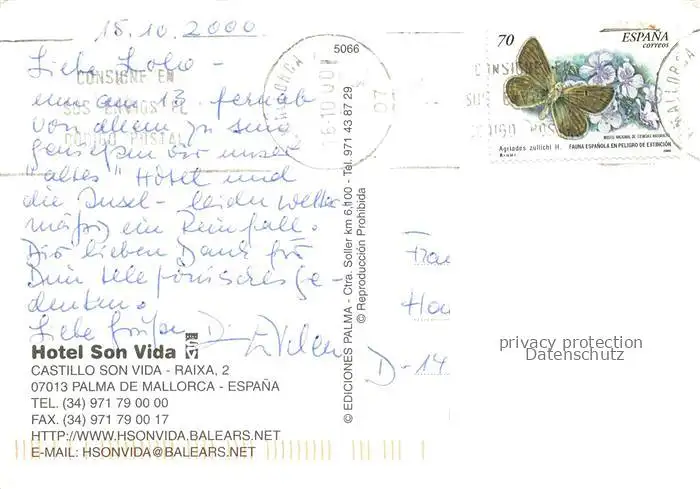 15.10.2000
Liebe Lobo -
um am 13. fernab
von allem zu sein
genießen wir unser
"altes" Hotel und
die Insel - leider wetter
mäßig ein Reinfall.
Dir lieben Dank für
Dein telefonisches Ge-
denken.
Liebe Grüße
CONSIGNE EN
SUS ENVIOS EL
CODIGO POSTAL
MALLORCA
16-10-00
07
5066
© EDICIONES PALMA - Ctra. Soller km 6,100 - Tel. 971 43 87 29
© Reproducción Prohibida
70
ESPAÑA
correos
MUSEO NACIONAL DE CIENCIAS NATURALES
Agriades zullichi H. FAUNA ESPAÑOLA EN PELIGRO DE EXTINCIÓN
2000
CONSIGNE EN
SUS ENVIOS EL
CODIGO POSTAL
MALLORCA
Frau
D-14
privacy protection
Datenschutz
Hotel Son Vida
CASTILLO SON VIDA - RAIXA, 2
07013 PALMA DE MALLORCA - ESPAÑA
TEL. (34) 971 79 00 00
FAX. (34) 971 79 00 17
HTTP://WWW.HSONVIDA.BALEARS.NET
E-MAIL: HSONVIDA@BALEARS.NET